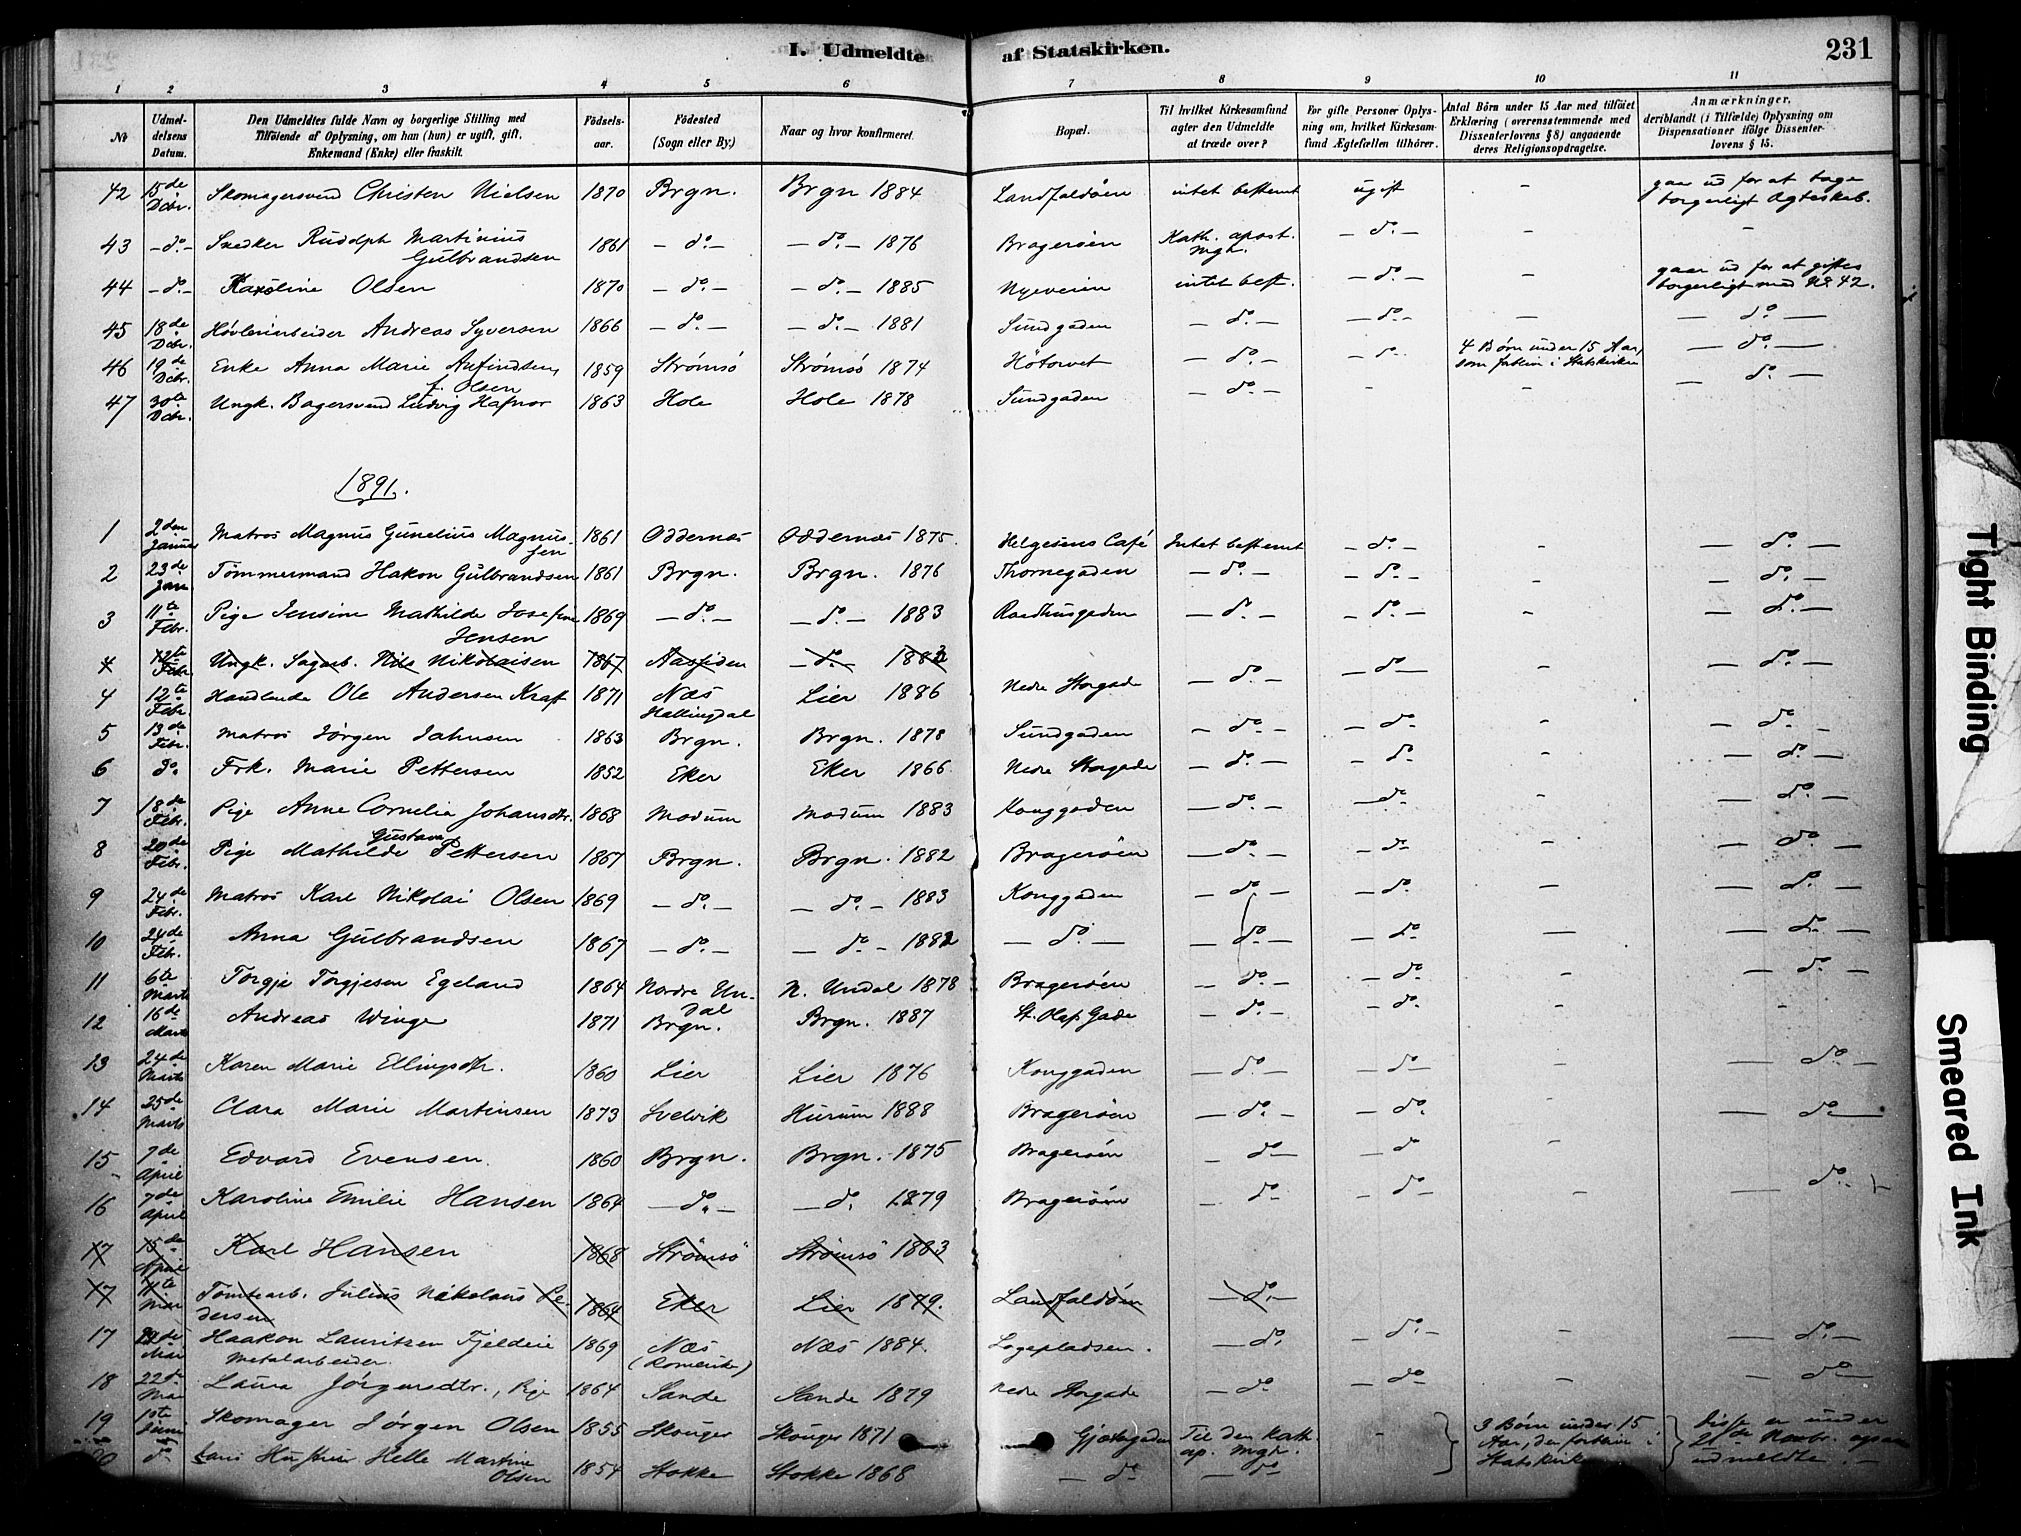 I. Udmeldte af Statskirken.
231
1 2 3 4 5 6 7 8 9 10 11
№
Udmeldelsens Datum.
Den Udmeldtes fulde Navn og borgerlige Stilling med Tilföiende af Oplysning, om han (hun) er ugift, gift, Enkemand (Enke) eller fraskilt.
Födselsaar.
Födested (Sogn eller By.)
Naar og hvor konfirmeret.
Bopæl.
Til hvilket Kirkesamfund agter den Udmeldte at træde over?
For gifte Personer Oplysning om, hvilket Kirkesamfund Ægtefællen tilhörer.
Antal Börn under 15 Aar med tilföiet Erklæring (overensstemmende med Dissenterlovens § 8) angaaende deres Religionsopdragelse.
Anmærkninger, deriblandt (i Tilfælde) Oplysning om Dispensationer ifölge Dissenterlovens § 15.
42 15de Decbr. Skomagersvend Christen Nielsen 1870 Brgn. Brgn 1884 Landfaldöen intet bestemt ugift - gaar ud for at tage borgerligt Ægteskab.
43 -do- Snedker Rudolph Martinius Gulbrandsen 1861 -do- -do- 1876 Bragerøen Kath. apost. Mgh. -do- - -
44 -do- Karoline Olsen 1870 -do- -do- 1885 Nyeveien intet best. -do- - gaar ud for at giftes borgerligt med No. 42.
45 18de Decbr. Høvleriarbeider Andreas Syversen 1866 -do- -do- 1881 Sundgaden -do- -do- - -do-
46 19de Decbr. Enke Anna Marie Anfindsen, f. Olsen 1859 Strømsö Strømsö 1874 Hötorvet -do- -do- 4 Børn under 15 Aar, som forblive i Statskirken -do-
47 30te Decbr. Ungk. Bagersvend Ludvig Hafnor 1863 Hole Hole 1878 Sundgaden -do- - - -do-
1891.
1 2den Januar Matros Magnus Gunelius Magnussen 1861 Oddernæs Oddernæs 1875. Helgesens Café Intet bestemt -do- - -do-
2 23de Jan Tömmermand Hakon Gulbrandsen 1861 Brgn. Brgn. 1876 Thornegaden -do- -do- - -do-
3 11te Febr. Pige Jensine Mathilde Josefine Jensen 1869 -do- -do- 1883 Raadhusgaden -do- -do- - -do-
4 12te Febr. Ungk. Sagarb. Nils Nikolaisen 1867 Aassiden -do- 1882
4 12te Febr. Handlende Ole Andersen Kraft 1871 Næs Hallingdal Lier 1886 Nedre Storgade -do- -do- - -do-
5 13de Febr. Matros Jörgen Jahnsen 1863 Brgn. Brgn. 1878 Sundgaden -do- -do- - -do-
6 do. Frk. Marie Pettersen 1852 Eker Eker 1866 Nedre Storgade -do- -do- - -do-
7 18de Febr. Pige Anne Cornelia Johansdtr. 1868 Modum Modum 1883 Konggaden -do- -do- - -do-
8 20de Febr. Pige Mathilde Gustava Pettersen 1867 Brgn. Brgn. 1882 Bragerøen -do- -do- - -do-
9 24de Febr. Matros Karl Nikolai Olsen 1869 -do- -do- 1883 Konggaden -do- -do- - -do-
10 24de Febr. Anna Gulbrandsen 1867 -do- -do- 1882 -do- -do- -do- - -do-
11 6te Marts Torgje Torgjesen Egeland 1864 Nordre Undal N. Undal 1878 Bragerøen -do- -do- - -do-
12 16de Marts Andreas Winge 1871 Brgn. Brgn. 1887 St. Olafs Gade -do- -do- - -
13 24de Marts Karen Marie Ellingsdtr. 1860 Lier Lier 1876 Konggaden -do- -do- - -do-
14 25de Marts Clara Marie Martinsen 1873 Svelvik Hurum 1888 Bragerøen -do- -do- - -do-
15 7de April Edvard Evensen. 1860 Brgn. Brgn. 1875 Bragerøen -do- -do -
16 7de April Karoline Emilie Hansen 1864 -do- -do. 1879 Bragerøen -do -do- - -do-
17 15de April Karl Hansen 1868 Strömsö Strömsö 1883
17 11te Mai Tomtearb. Julius Nikolaus Pedersen 1864 Eker Lier 1879. Landfaldöen -do-
17 22de Mai Haakon Lauritzen Fjeldeie Metalarbeider. 1869 Næs (Romerike) Næs 1884. Løgepladsen. -do. -do- - -do-
18 22de Mai Laura Jörgensdtr., Pige 1864 Sande Sande 1879 Nedre Storgade -do -do- - -do-
19 1ste Juni Skomager Jörgen Olsen 1855 Skouger Skouger 1871 Gjetergaden Til den kath. ap. Mgh. - 3 Børn under 15 Aar, der forblive i Statskirk Disse er under 21de Novbr. udmeldte.
20 do Hans Hustru Helle Martine Olsen 1854 Stokke Stokke 1868 -do -do
Tight Binding
Smeared Ink